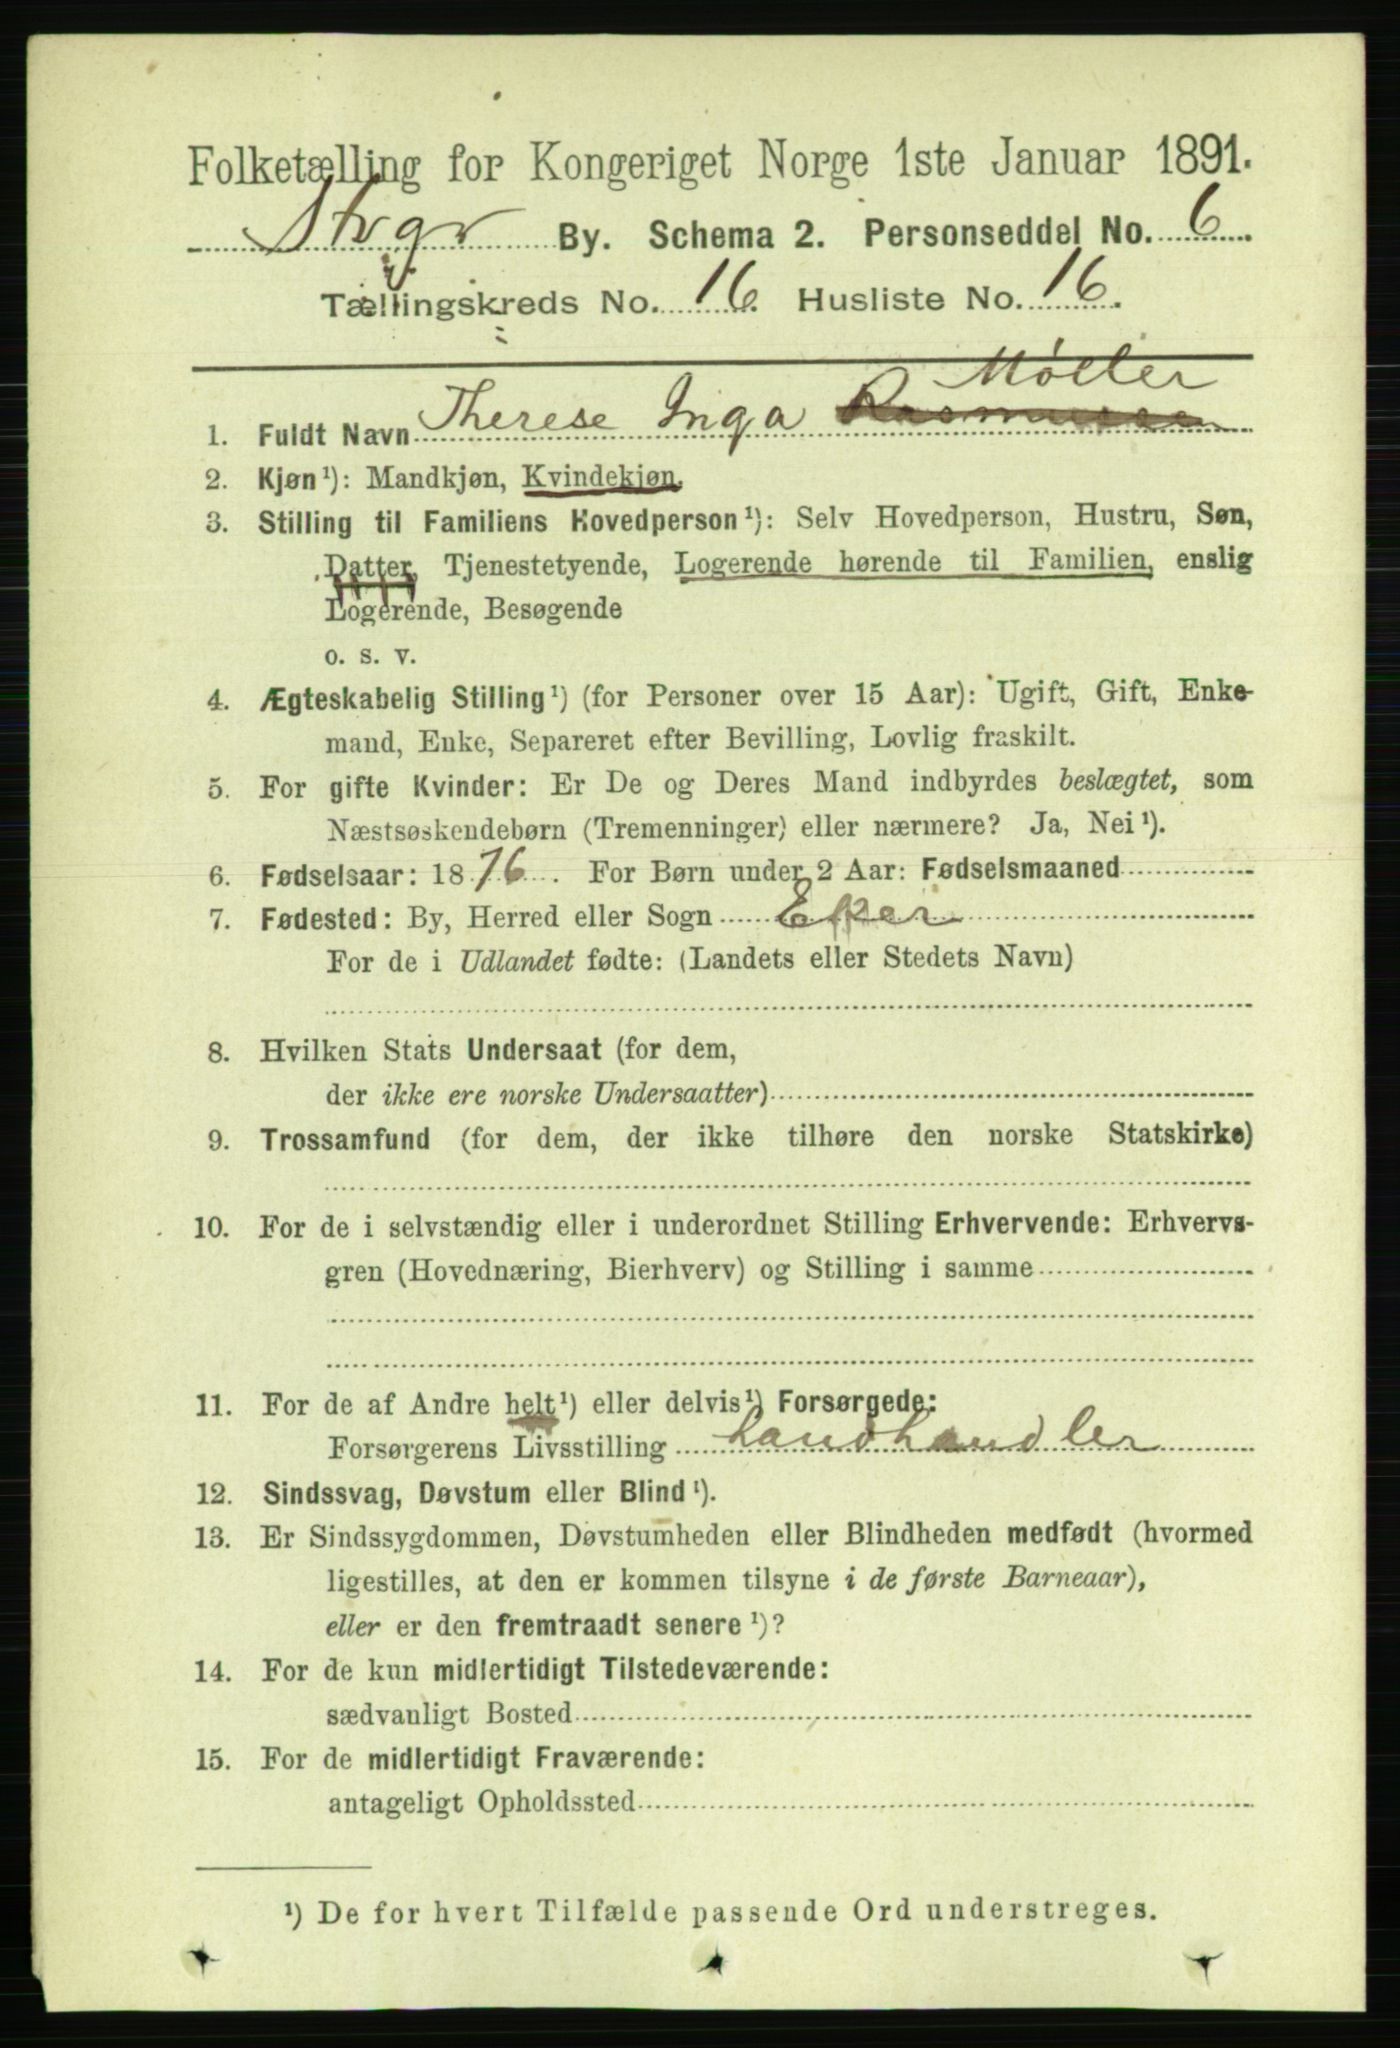 Folketælling for Kongeriget Norge 1ste Januar 1891.
Stvgr By. Schema 2. Personseddel No. 6
Tællingskreds No. 16. Husliste No. 16.
Møller
1. Fuldt Navn Therese Inga Rasmussen
2. Kjøn¹): Mandkjøn, Kvindekjøn.
3. Stilling til Familiens Hovedperson¹): Selv Hovedperson, Hustru, Søn,
Datter, Tjenestetyende, Logerende hørende til Familien, enslig
Logerende, Besøgende
o. s. v.
4. Ægteskabelig Stilling¹) (for Personer over 15 Aar): Ugift, Gift, Enke-
mand, Enke, Separeret efter Bevilling, Lovlig fraskilt.
5. For gifte Kvinder: Er De og Deres Mand indbyrdes beslægtet, som
Næstsøskendebørn (Tremenninger) eller nærmere? Ja, Nei¹).
6. Fødselsaar: 1876. For Børn under 2 Aar: Fødselsmaaned
7. Fødested: By, Herred eller Sogn Eker
For de i Udlandet fødte: (Landets eller Stedets Navn)
8. Hvilken Stats Undersaat (for dem,
der ikke ere norske Undersaatter)
9. Trossamfund (for dem, der ikke tilhøre den norske Statskirke)
10. For de i selvstændig eller i underordnet Stilling Erhvervende: Erhvervs-
gren (Hovednæring, Bierhverv) og Stilling i samme
11. For de af Andre helt¹) eller delvis¹) Forsørgede:
Forsørgerens Livsstilling Landhandler
12. Sindssvag, Døvstum eller Blind¹).
13. Er Sindssygdommen, Døvstumheden eller Blindheden medfødt (hvormed
ligestilles, at den er kommen tilsyne i de første Barneaar),
eller er den fremtraadt senere¹)?
14. For de kun midlertidigt Tilstedeværende:
sædvanligt Bosted
15. For de midlertidigt Fraværende:
antageligt Opholdssted
¹) De for hvert Tilfælde passende Ord understreges.